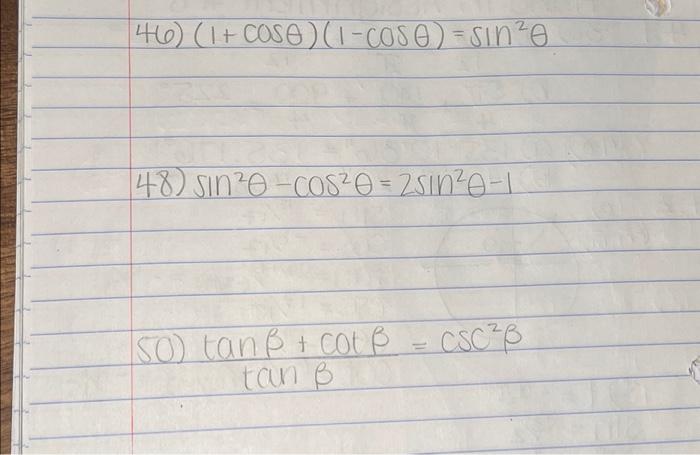 46) (1+cosθ)(1-cosθ)=sin²θ
48) sin²θ-cos²θ=2sin²θ-1
50) tanβ+cotβ = csc²β
tan β